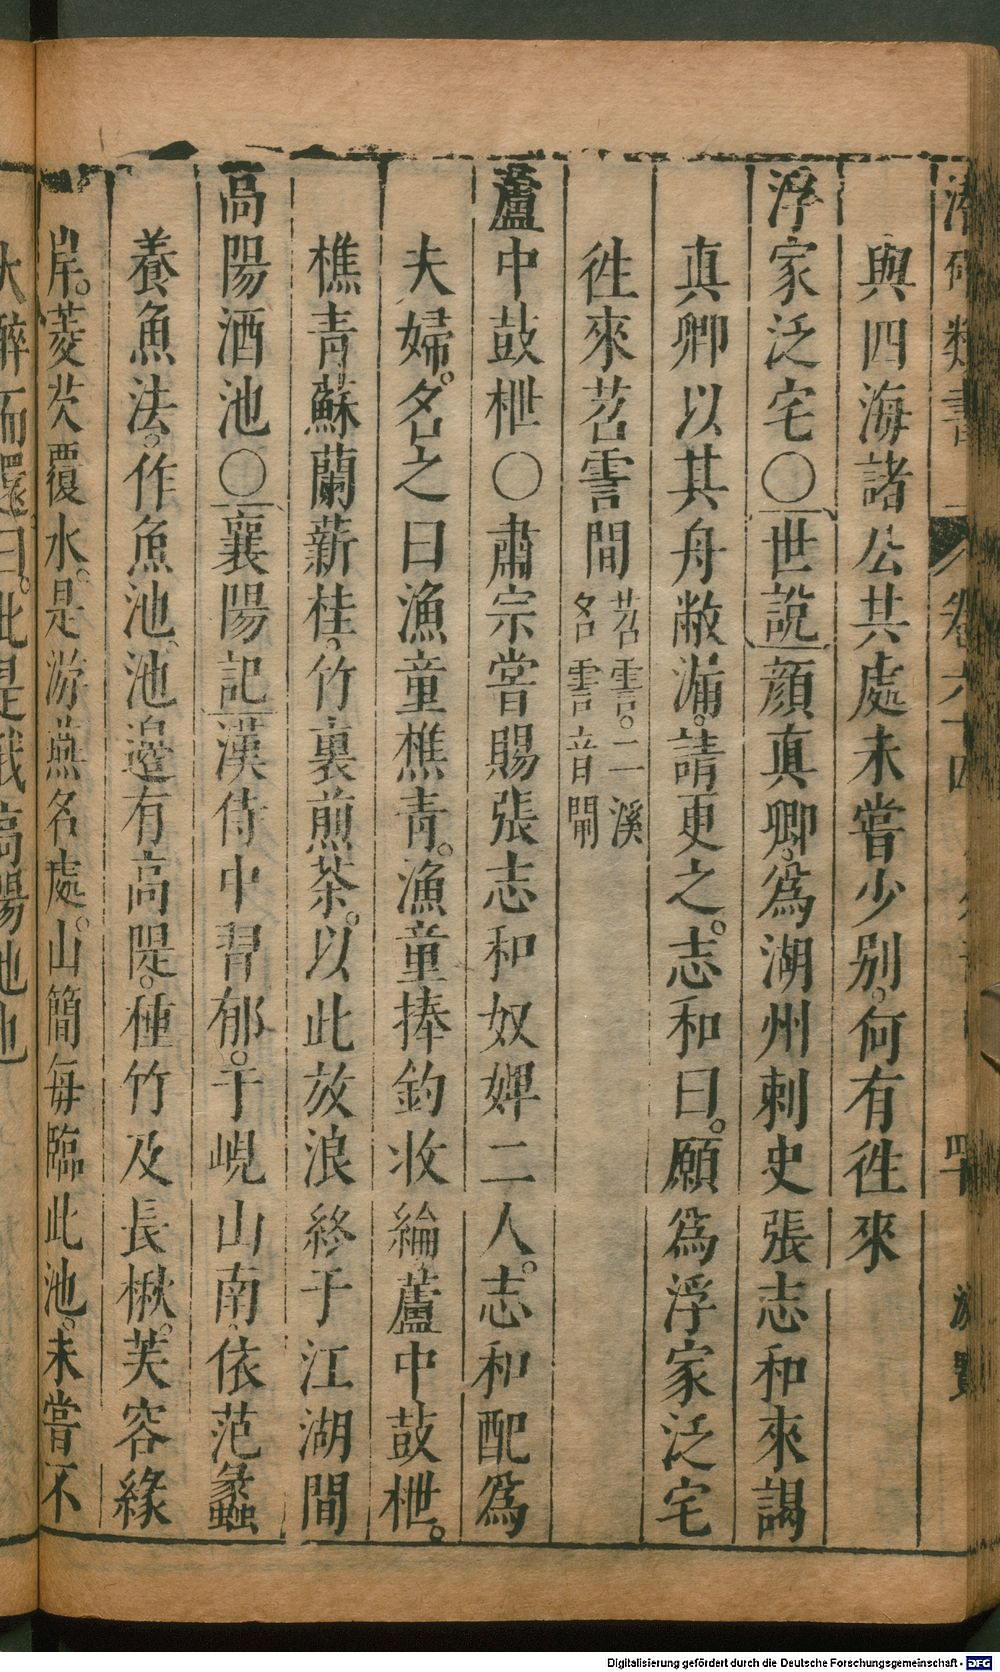 潛確類書 卷六十四 四十
與四海諸公共處未嘗少别。何有徃來
浮家泛宅〇世說顏真卿。為湖州刺史張志和來謁
真卿以其舟敝漏。請更之。志和曰。願為浮家泛宅
徃來苕霅間苕霅。二溪名霅音閘
蘆中鼓枻〇肅宗嘗賜張志和奴婢二人。志和配為
夫婦。名之曰漁童樵青。漁童捧釣收綸蘆中鼓枻。
樵青蘇蘭薪桂。竹裏煎茶。以此放浪終于江湖間
高陽酒池〇襄陽記漢侍中習郁。于峴山南。依范蠡
養魚法。作魚池。池邊有高隄。種竹及長楸。芙容緣
岸。菱茨覆水。是游燕名處。山簡每臨此池。未嘗不
大醉而還。曰。此是我高陽池也
Digitalisierung gefördert durch die Deutsche Forschungsgemeinschaft - DFG